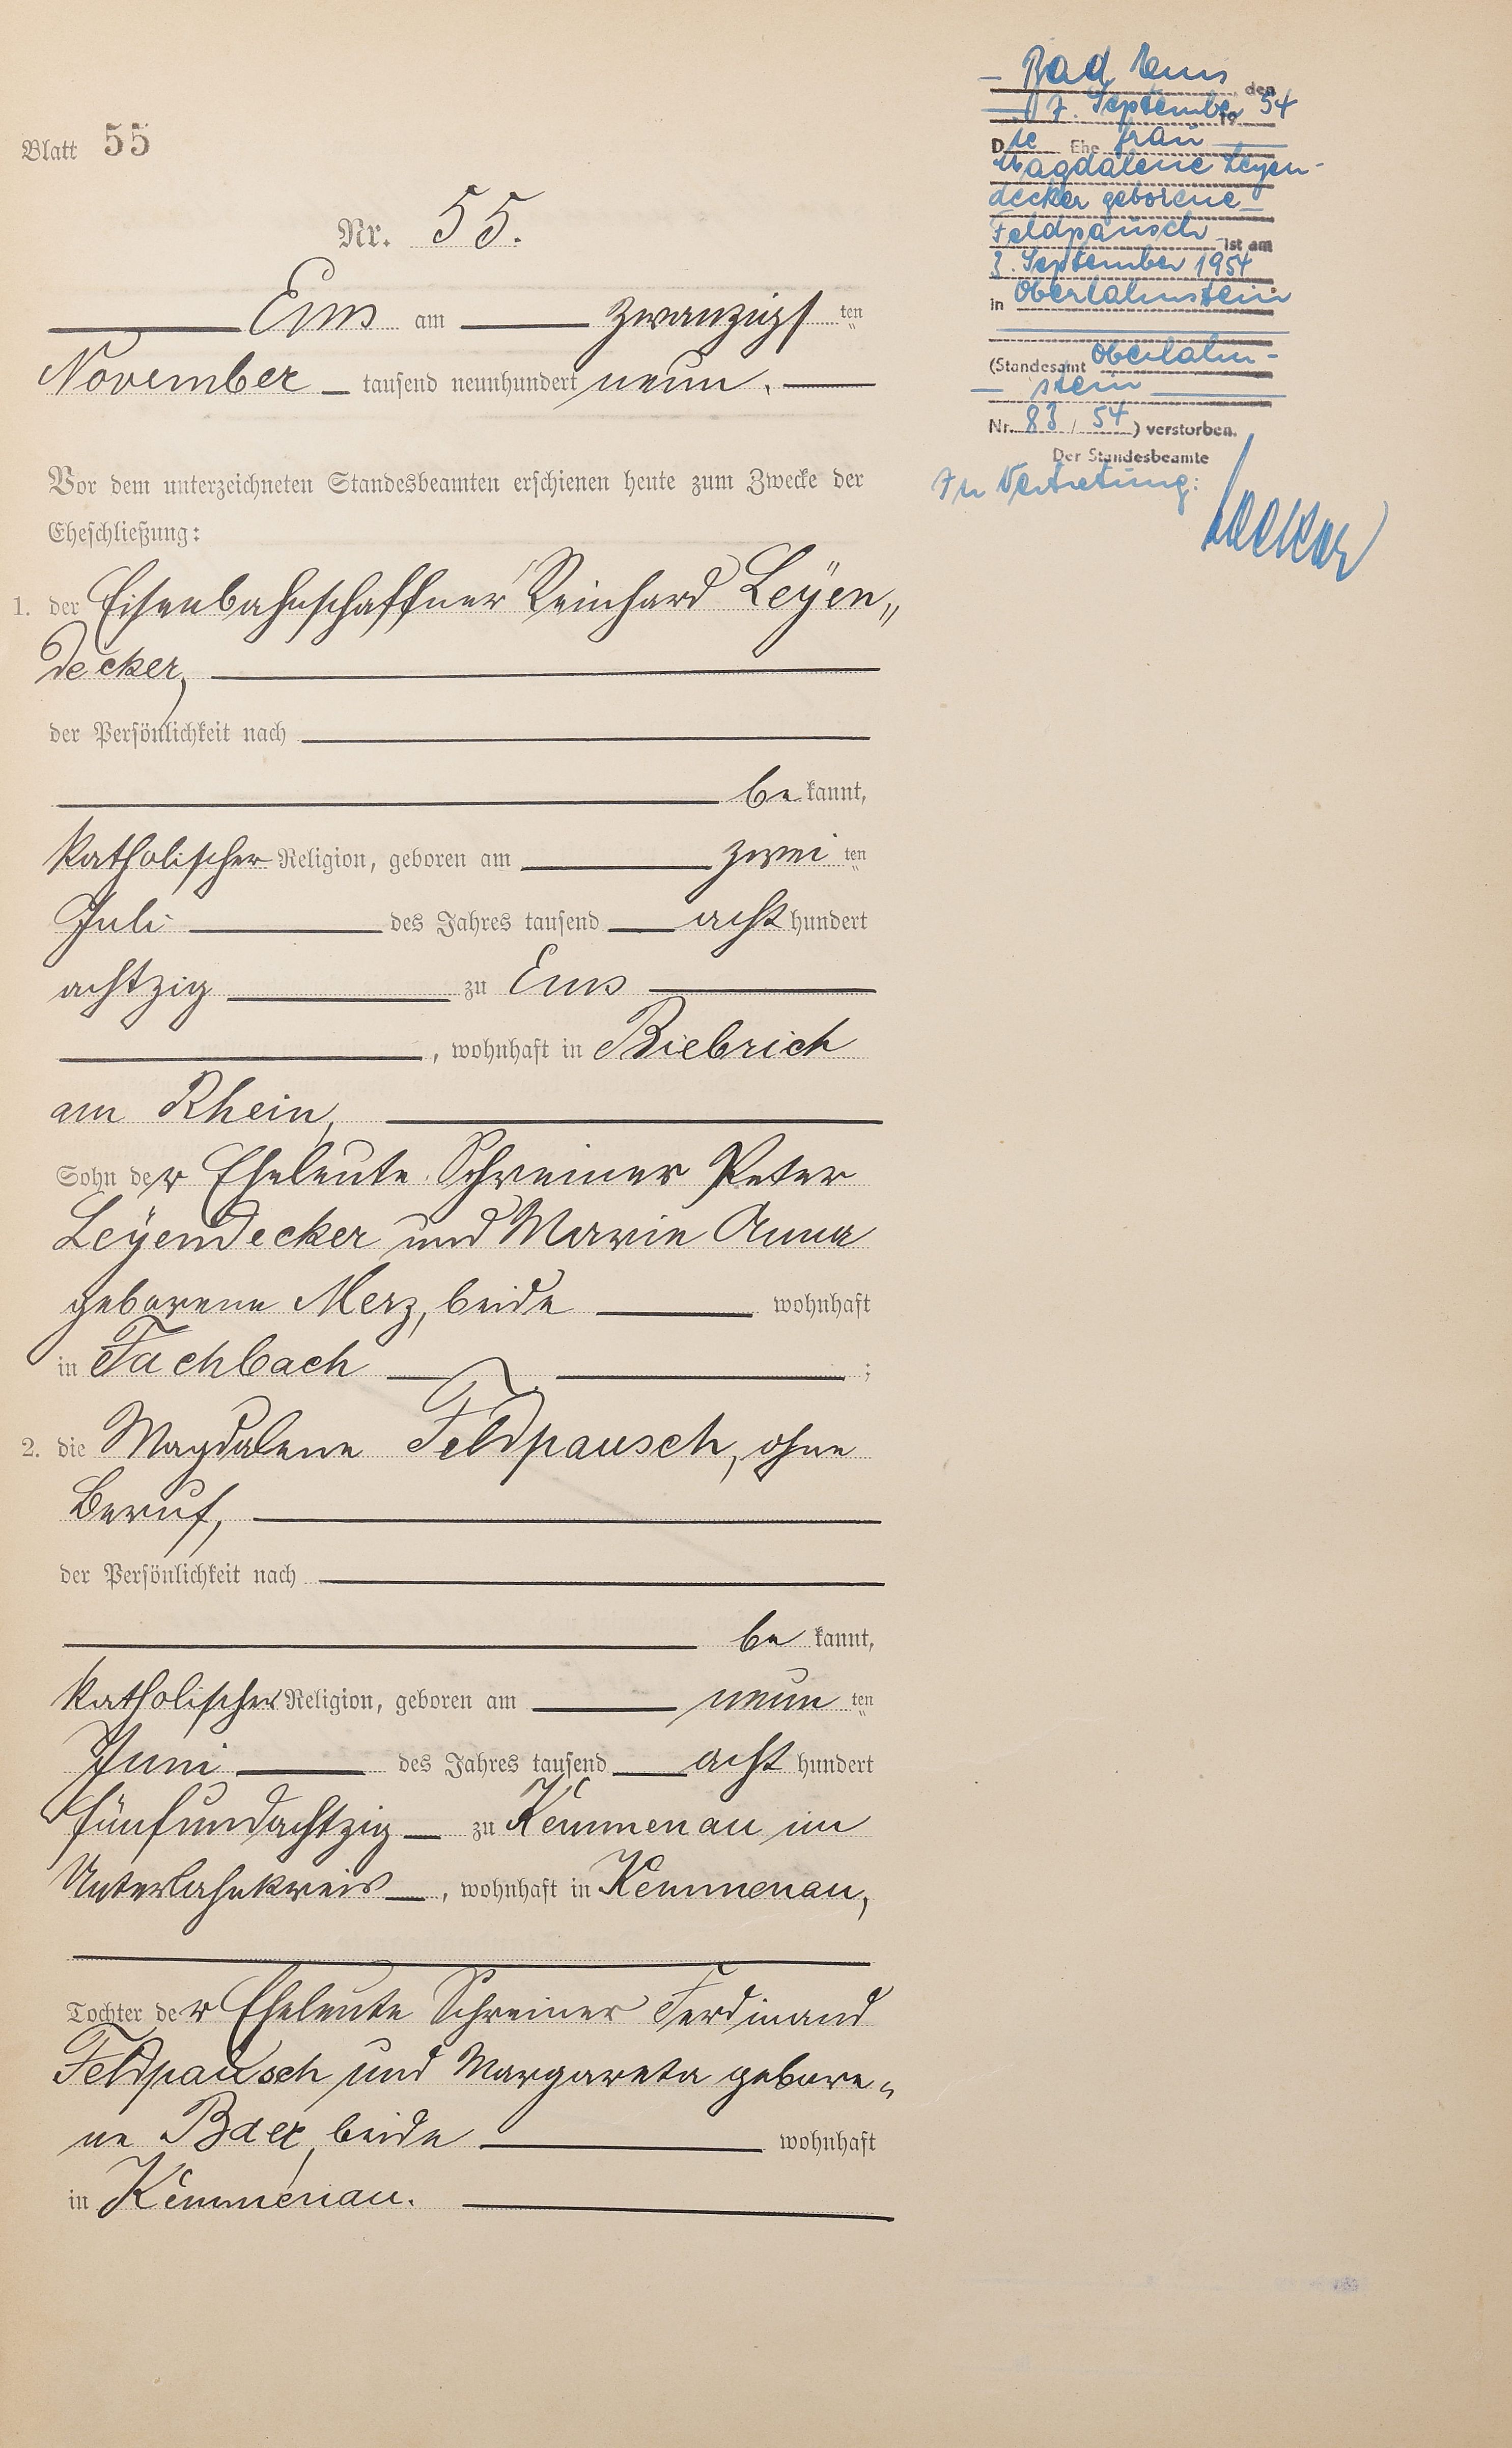 Blatt 55
Nr. 55.
Ems am zwanzigsten
November tausend neunhundert neun.
Vor dem unterzeichneten Standesbeamten erschienen heute zum Zwecke der
Eheschließung:
1. der Eisenbahnschaffner Reinhard Leÿen„
decker,
der Persönlichkeit nach
be kannt,
katholischer Religion, geboren am zwei ten
Juli des Jahres tausend acht hundert
achtzig zu Ems
, wohnhaft in Biebrich
am Rhein,
Sohn der Eheleute Schreiner Peter
Leÿendecker und Marie Anna
geborene Merz, beide wohnhaft
in Fachbach ;
2. die Magdalene Feldpausch, ohne
Beruf,
der Persönlichkeit nach
be kannt,
katholischer Religion, geboren am neun ten
Juni des Jahres tausend acht hundert
fünfundachtzig zu Kemmenau im
Unterlahnkreis, wohnhaft in Kemmenau,
Tochter der Eheleute Schreiner Ferdinand
Feldpausch und Margareta gebore„
ne Baer, beide wohnhaft
in Kemmenau.
Bad Ems, den
17. September 1954
Die Ehe frau
Magdalene Leyen-
decker geborene
Feldpausch ist am
3. September 1954
in Oberlahnstein
(Standesamt Oberlahn-
stein
Nr. 83 / 54) verstorben.
Der Standesbeamte
In Vertretung: